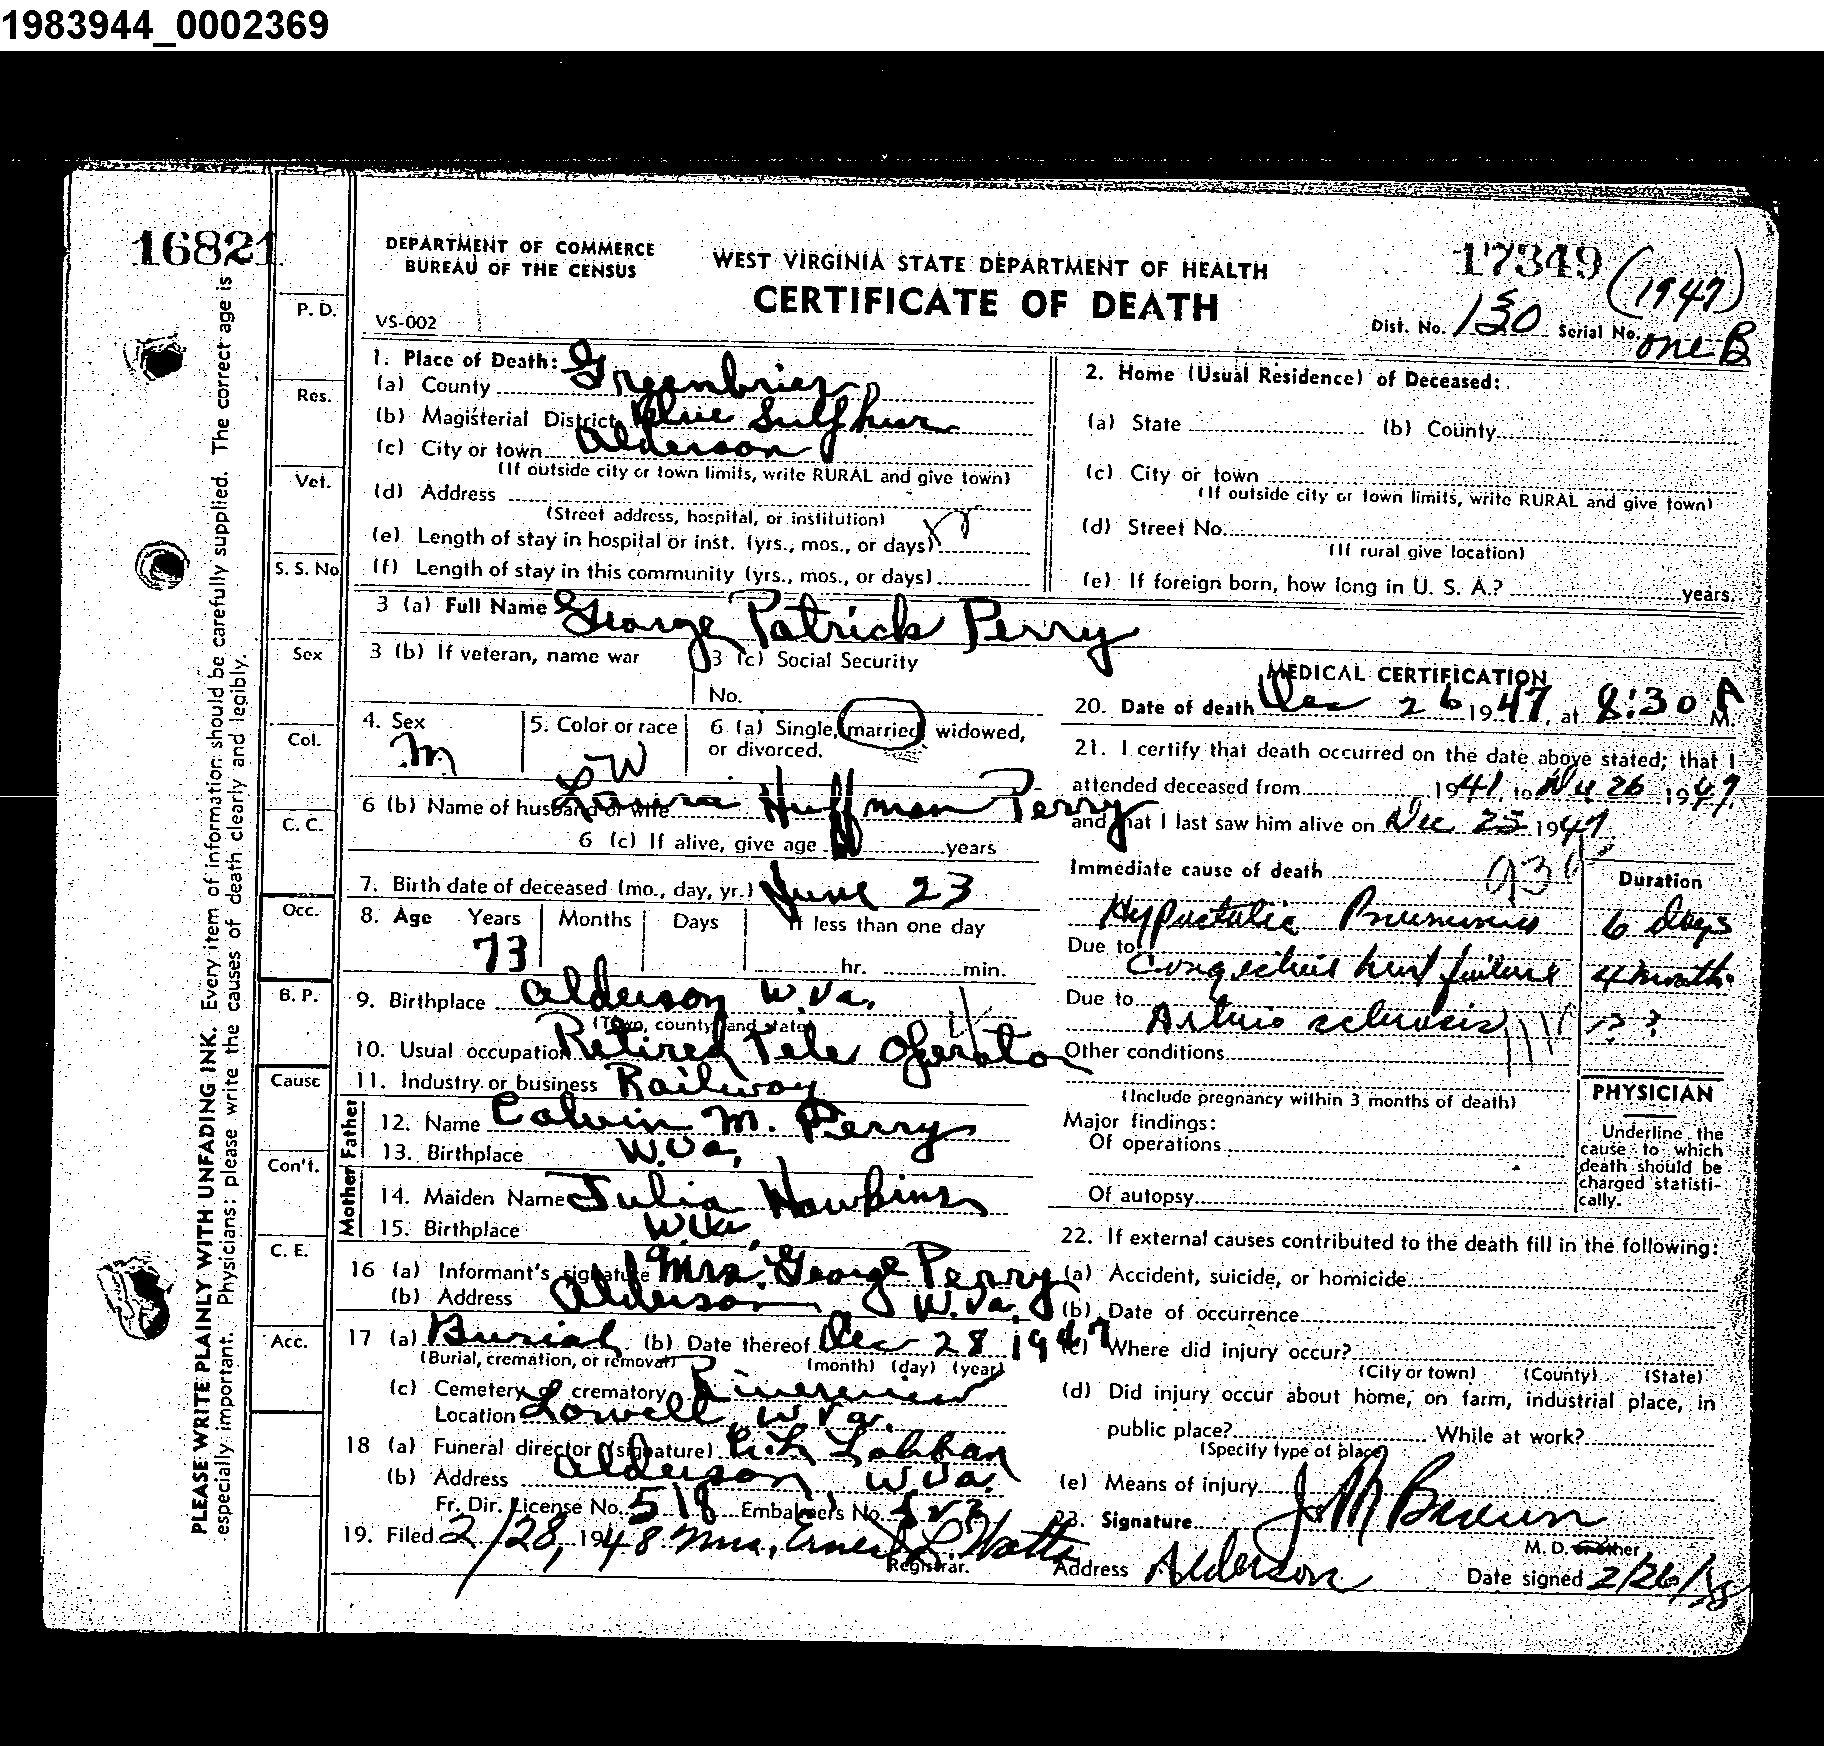 1983944_0002369
16821
DEPARTMENT OF COMMERCE
BUREAU OF THE CENSUS
VS-002
WEST VIRGINIA STATE DEPARTMENT OF HEALTH
CERTIFICATE OF DEATH
17349 (1947)
Dist. No. 130 Serial No. one B
PLEASE WRITE PLAINLY WITH UNFADING INK. Every item of information should be carefully supplied. The correct age is
especially important. Physicians: please write the causes of death clearly and legibly.
P. D.
Res.
Vet.
S. S. No.
Sex
Col.
C. C.
Occ.
B. P.
Cause
Con't.
C. E.
Acc.
1. Place of Death:
(a) County Greenbrier
(b) Magisterial District Blue Sulphur
(c) City or town Alderson
(If outside city or town limits, write RURAL and give town)
(d) Address
(Street address, hospital, or institution)
(e) Length of stay in hospital or inst. (yrs., mos., or days)
(f) Length of stay in this community (yrs., mos., or days)
2. Home (Usual Residence) of Deceased:
(a) State (b) County
(c) City or town
(If outside city or town limits, write RURAL and give town)
(d) Street No.
(If rural give location)
(e) If foreign born, how long in U. S. A.? years.
3 (a) Full Name George Patrick Perry
3 (b) If veteran, name war
3 (c) Social Security
No.
4. Sex
M
5. Color or race
W
6 (a) Single, married, widowed,
or divorced.
6 (b) Name of husband or wife Huffman Perry
6 (c) If alive, give age years
7. Birth date of deceased (mo., day, yr.) June 23
8. Age Years Months Days If less than one day
73 hr. min.
9. Birthplace Alderson W.Va.
(Town, county and state)
10. Usual occupation Retired Tele Operator
11. Industry or business Railway
Father
12. Name Calvin M. Perry
13. Birthplace W.Va.
Mother
14. Maiden Name Julia Hawkins
15. Birthplace W.Va.
16 (a) Informant's signature Mrs. George Perry
(b) Address Alderson W.Va.
17 (a) Burial (b) Date thereof Dec 28 1947
(Burial, cremation, or removal) (month) (day) (year)
(c) Cemetery or crematory Riverview
Location Lowell, W.Va.
18 (a) Funeral director (signature) Lobban
(b) Address Alderson W.Va.
Fr. Dir. License No. 518 Embalmer's No.
19. Filed 2/28, 1948 Mrs. Ernest L. Watts
Registrar.
MEDICAL CERTIFICATION
20. Date of death Dec 26 1947, at 8:30 A M.
21. I certify that death occurred on the date above stated; that I
attended deceased from 1941, to Dec 26 1947
and that I last saw him alive on Dec 25 1947
Immediate cause of death Duration
Hypostatic Pneumonia 6 days
Due to
Congestive heart failure 4 months
Due to
Arterio sclerosis ? ?
Other conditions
(Include pregnancy within 3 months of death)
Major findings:
Of operations
Of autopsy
PHYSICIAN
Underline the
cause to which
death should be
charged statisti-
cally.
22. If external causes contributed to the death fill in the following:
(a) Accident, suicide, or homicide
(b) Date of occurrence
(c) Where did injury occur?
(City or town) (County) (State)
(d) Did injury occur about home, on farm, industrial place, in
public place? While at work?
(Specify type of place)
(e) Means of injury
23. Signature J M Brown
M. D. or other
Address Alderson Date signed 2/26/48